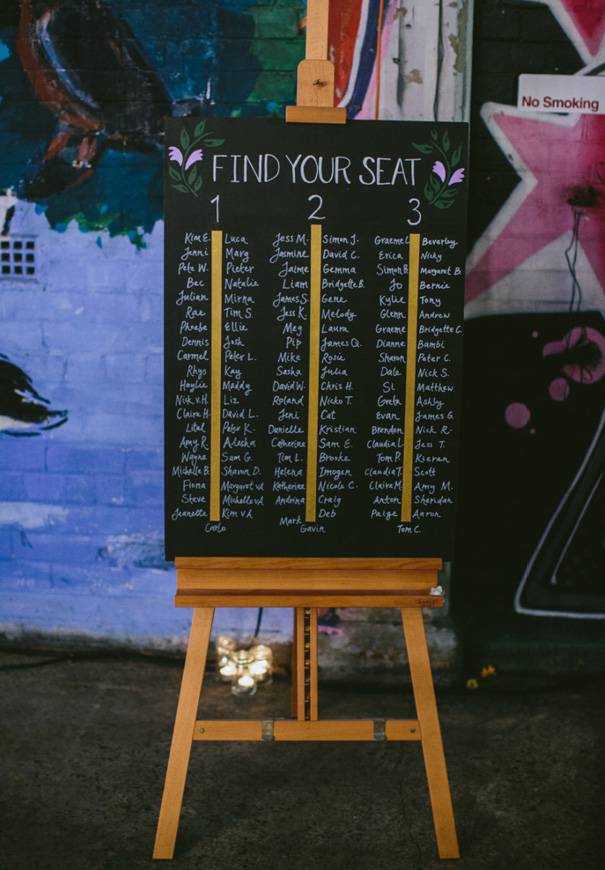 No Smoking
FIND YOUR SEAT
1 2 3
Kim E. Luca Jess M. Simon J. Graeme C. Beverley
Jenni Marg Jasmine David C. Erica Nicky
Pete W. Pieter Jaime Gemma Simon B. Margaret B.
Bec Natalie Liam Bridgette B. Jo Bernie
Julian Mirna James S. Gene Kylie Tony
Rae Tim S. Jess K. Melody Glenn Andrew
Phoebe Ellie Meg Laura Graeme Bridgette C.
Dennis Josh Pip James Q. Dianne Bambi
Carmel Peter L. Mike Rosie Sharon Peter C.
Rhys Kay Sasha Julia Dale Nick S.
Haylie Maddy David W. Chris H. Si Matthew
Nick v.H. Liz Roland Nicko T. Greta Ashly
Claire H. David L. Jeni Cat Evan James G.
Lital Peter K. Danielle Kristian Brendon Nick R.
Amy R. Alosha Catherine Sam E. Claudia L. Jess T.
Wayne Sam G. Tim L. Brooke Tom P. Kieran
Michelle B. Sharon D. Helena Imogen Claudia T. Scott
Fiona Margaret v.A Katherine Nicole C. Claire M. Amy M.
Steve Michelle v.A Andrina Craig Anton Sheridan
Jeanette Kim v A Mark Deb Paige Aaron
Carlo Gavin Tom C.